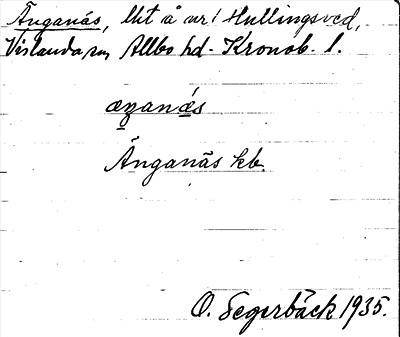 Änganäs, lht å nr 1 Hullingsved,
Vislanda sn, Allbo hd. Kronob. l.
Änganäs kb.
O. Segerbäck 1935.